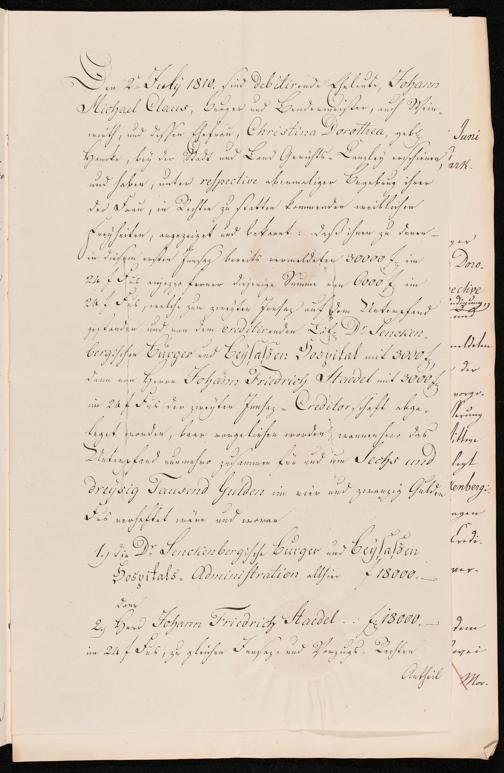 Den 2n July 1810. sind debitirende Eheleute, Johann
Michael Claus, Burger und Bendermeister, auch Wein-
wirth, und dessen Ehefrau, Christina Dorothea, geb.
bey der Stadt und Land Gerichts-Canzley erschienen,
und haben, unter respective abermaliger Begebung ihrer
der Frau, in Rechten zu statten kommenden weiblichen
Freyheiten, angezeiget und bekannt: daß ihnen zu denen
in diesem ersten Insatz bereits vermeldeten 30000 f im
24 f Fus annoch fernere diejenige Summe von 6000 f im
24 f Fus, welche zum zweyten Insatz auf dem Unterpfand
gestanden und von dem creditirenden Löb. Dr. Sencken-
bergischen Burger und Beysassen Hospital mit 3000 f,
dann von Herrn Johann Friedrich Staedel mit 3000 f
im 24 f Fus der zweyten Insatz-Creditorschaft abge-
leget worden, baar vorgeliehen worden, wannenhero das
Unterpfand nunmehro zusammen für und um Sechs und
dreysig Tausend Gulden im vier und zwanzig Gulden
Fus verhaftet wäre und woran
1.) die Dr. Senckenbergische Burger und Beysassen
Hospitals-Administration allhier f 18000.—
dann
2.) Herr Johann Friedrich Staedel f 18000.—
im 24 f Fus, zu gleichen Insatz- und Vorzugs-Rechten
Antheil
Juni
Doro-
ective
und
meldeten
der
enbergi-
Credi-
ver-
dem
Mor-